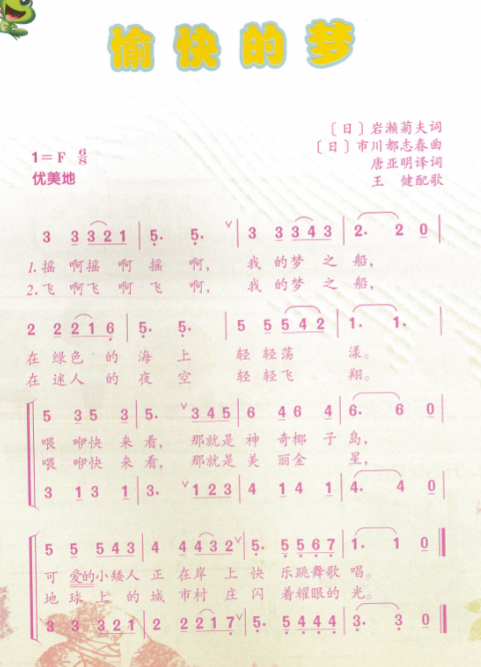 愉快的梦
〔日〕岩濑菊夫词
〔日〕市川都志春曲
1=F 6/8
唐亚明译词
优美地
王 健配歌
3 3 3 2 1 | 5. 5. ∨ | 3 3 3 4 3 | 2. 2 0 |
1.摇 啊摇 啊 摇 啊, 我 的梦 之 船,
2.飞 啊飞 啊 飞 啊, 我 的梦 之 船,
2 2 2 1 6 | 5. 5. | 5 5 5 4 2 | 1. 1. |
在 绿色 的 海 上 轻 轻荡 漾。
在 迷人 的 夜 空 轻 轻飞 翔。
5 3 5 3 | 5. ∨ 3 4 5 | 6 4 6 4 | 6. 6 0 |
喂 咿快 来 看, 那就是 神 奇椰 子 岛,
喂 咿快 来 看, 那就是 美 丽金 星,
3 1 3 1 | 3. ∨ 1 2 3 | 4 1 4 1 | 4. 4 0 |
5 5 5 4 3 | 4 4 4 3 2 ∨ | 5. 5 5 6 7 | 1. 1 0 ‖
可 爱的小矮人 正 在岸 上 快 乐跳舞歌 唱。
地 球上 的 城 市村 庄 闪 着耀眼的 光。
3 3 3 2 1 | 2 2 2 1 7 ∨ | 5. 5 4 4 4 | 3. 3 0 ‖